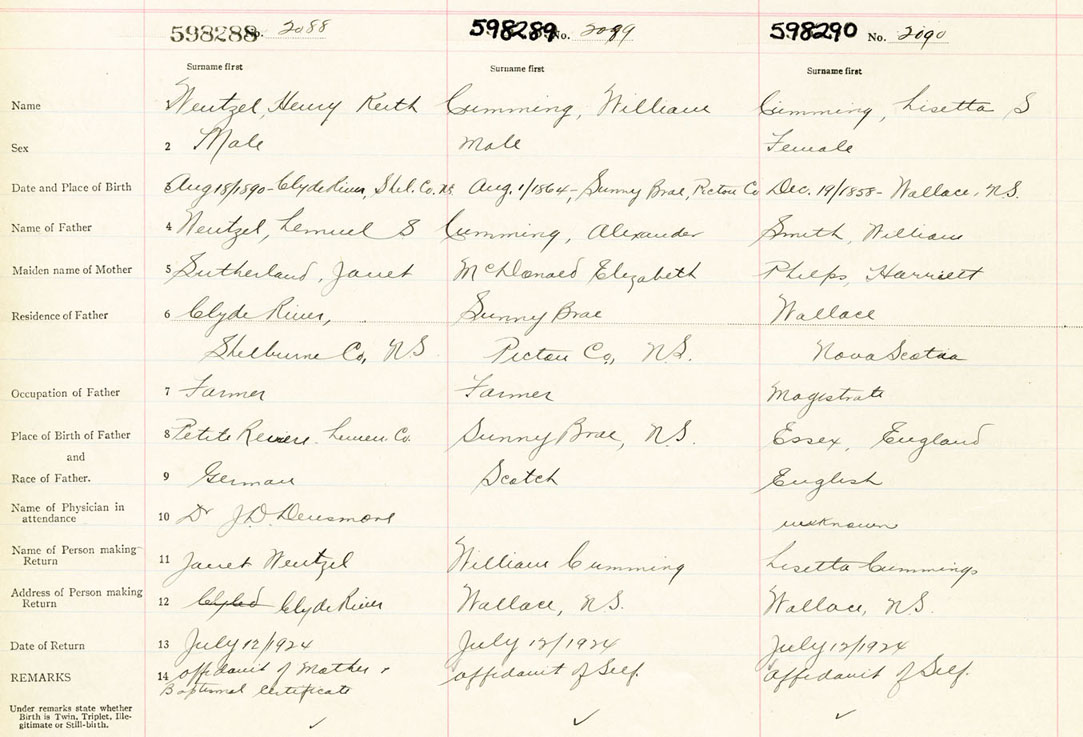 598288 No. 2088 598289 No. 2089 598290 No. 2090
Surname first Surname first Surname first
Name Wentzel, Henry Keith Cumming, William Cumming, Lisetta S
Sex 2 Male Male Female
Date and Place of Birth 3 Aug 18/1890 - Clyde River, Shel. Co. N.S. Aug. 1/1864 - Sunny Brae, Pictou Co Dec. 19/1858 - Wallace, N.S.
Name of Father 4 Wentzel, Lemuel S Cumming, Alexander Smith, William
Maiden name of Mother 5 Sutherland, Janet McDonald Elizabeth Phelps, Harriett
Residence of Father 6 Clyde River, Sunny Brae Wallace
Shelburne Co, N.S. Pictou Co, N.S. Nova Scotia
Occupation of Father 7 Farmer Farmer Magistrate
Place of Birth of Father 8 Petite Riviere Lunen. Co. Sunny Brae, N.S. Essex, England
and
Race of Father. 9 German Scotch English
Name of Physician in
attendance 10 Dr J.D. Densmore unknown
Name of Person making
Return 11 Janet Wentzel William Cumming Lisetta Cummings
Address of Person making
Return 12 Clyde River Wallace, N.S. Wallace, N.S.
Date of Return 13 July 12/1924 July 12/1924 July 12/1924
REMARKS 14 affidavit of Mother & affidavit of Self. affidavit of Self.
Baptismal Certificate
Under remarks state whether
Birth is Twin, Triplet, Ille-
gitimate or Still-birth.